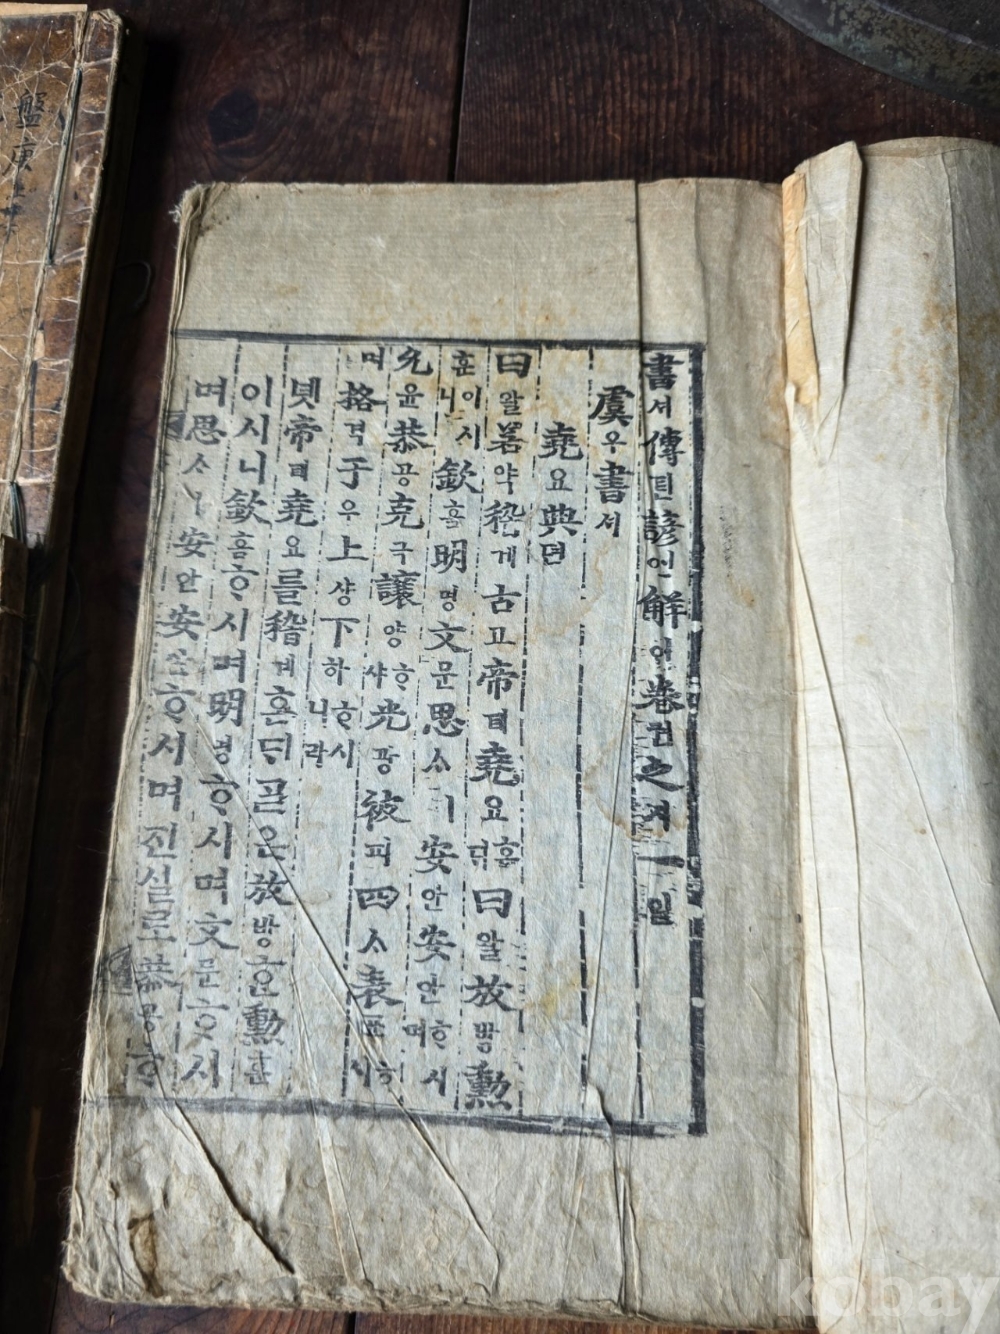 書셔傳뎐諺언解ᄒᆡ卷권之지一일
虞우書셔
堯요典뎐
曰왈若약稽계古고帝뎨堯요혼ᄃᆡ曰왈放방勳
훈이시니欽흠明명文문思ᄉᆞㅣ安안安안ᄒᆞ시며
允윤恭공克극讓양ᄒᆞ샤光광被피四ᄉᆞ表표ᄒᆞ시
며格격于우上샹下하ᄒᆞ시니라
녯帝뎨堯요를稽계혼ᄃᆡᄀᆞᆯ온放방ᄒᆞᆫ勳훈
이시니欽흠ᄒᆞ시며明명ᄒᆞ시며文문ᄒᆞ시
며思ᄉᆞㅣ安안安안ᄒᆞ시며진실로恭공ᄒᆞ
盤庚上中
kobay